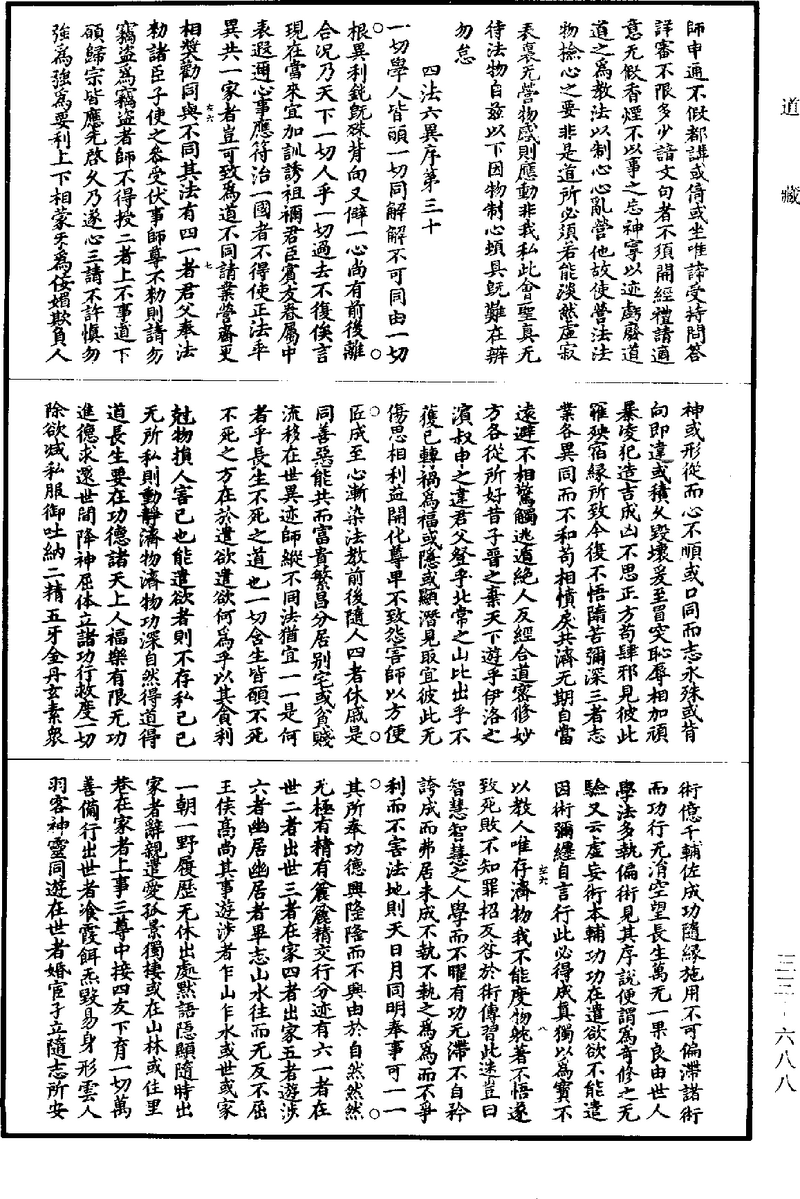 道藏
師申通不假都講或倚或坐唯諦受持問答
詳審不限多少諳文句者不須開經禮請適
意无假香煙不以事之忘神寧以迹虧廢道
道之為教法以制心心亂營他故使營法法
物捡心之要非是道所必須若能淡然虛寂
表裏无營物感則應動非我私此會聖真无
待法物自茲以下因物制心頓具既難在辨
勿怠
四法六異序第三十
一切學人皆願一切同解解不可同由一切
根異利鈍既殊背向又僻一心尚有前後離
合况乃天下一切人乎一切過去不復俟言
現在當來宜加訓誘祖禰君臣賓友眷屬中
表遐邇心事應符治一國者不得使正法乎
異共一家者豈可致為道不同請業營齋更
相奬勸同與不同其法有四一者君父奉法
勑諸臣子使之叅受伏事師尊不勑則請勿
竊盗為竊盗者師不得授二者上不事道下
願歸宗皆應先啓久乃遂心三請不許慎勿
強為強為要利上下相蒙乐為佞媚欺負人
神或形從而心不順或口同而志永殊或背
向即違或積久毀壞爰至冒突恥辱相加頑
暴凌犯造吉成凶不思正方苟肆邪見彼此
罹殃宿緣所致今復不悟隋苦彌深三者志
業各異同而不和苟相憒戾共濟无期自當
遠避不相駕觸逃遁絶人反經合道密修妙
方各從所好昔子晉之棄天下遊乎伊洛之
濱叔申之違君父登乎北常之山比出乎不
獲已轉禍為福或隱或顯潛見取宜彼此无
傷思相利益開化尊卑不致怨害師以方便
匠成至心漸染法教前後隨人四者休戚是
同善惡能共而富貴繁昌分居別宅或貧賤
流移在世異迹師縱不同法猶宜一一是何
者乎長生不死之道也一切含生皆願不死
不死之方在於遣欲遣欲何為乎以其貪利
尅物損人害己也能遣欲者則不存私己己
无所私則動靜濟物濟物功深自然得道得
道長生要在功德諸天上人福樂有限无功
進德求還世間降神屈体立諸功行救度一切
除欲减私服御吐納二精五牙金丹玄素衆
術億千輔佐成功隨緣施用不可偏滯諸術
而功行无涓空望長生萬无一果良由世人
學法多執偏術見其序說便謂為奇修之无
驗又云虛妄術本輔功功在遣欲欲不能遣
因術彌纏自言行此必得成真獨以為寳不
以教人唯存濟物我不能度物躭著不悟遂
致死敗不知罪招反咎於術傳習此迷豈曰
智慧智慧之人學而不曜有功无滯不自矜
誇成而弗居未成不執不執之為為而不爭
利而不害法地則天日月同明奉事可一一
其所奉功德興隆隆而不興由於自然然然
无極有精有麄麄精交行分迹有六一者在
世二者出世三者在家四者出家五者遊涉
六者幽居幽居者畢志山水往而无反不屈
王侯高尚其事遊涉者乍山乍水或世或家
一朝一野履歷无休出處默語隱顯隨時出
家者辭親遣愛孤景獨棲或在山林或住里
巷在家者上事三尊中接四友下育一切萬
善備行出世者飡霞餌炁毀易身形雲人
羽客神靈同遊在世者婚宦子立隨志所安
左六 七
左六 八
三二-六八八